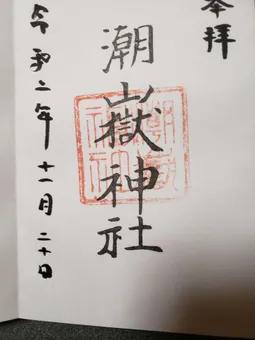 奉拝
潮嶽神社
令和二年十一月二十日